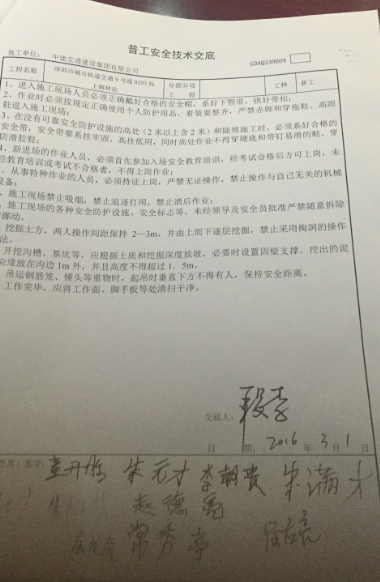 普工安全技术交底
施工单位：中建交通建设集团有限公司 GDAQ330609
工程名称 深圳市城市轨道交通9号线9103标 分部分项 工种 普工
上梅林站 工程
1、进入施工现场人员必须正确戴好合格的安全帽，系好下颚带，锁好带扣；
2、作业时必须按规定正确使用个人防护用品，着装要整齐，严禁赤脚和穿拖鞋、高跟
鞋进入施工现场；
3、在没有可靠安全防护设施的高处（2米以上含2米）和陡坡施工时，必须系好合格的
安全带，安全带要系挂牢固，高挂低用，同时高处作业不得穿硬底和带钉易滑的鞋，穿
防滑胶鞋；
4、新进场的作业人员，必须首先参加入场安全教育培训，经考试合格后方可上岗，未
经教育培训或考试不合格者，不得上岗作业；
、从事特种作业的人员，必须持证上岗，严禁无证操作，禁止操作与自己无关的机械
设备；
、施工现场禁止吸烟，禁止追逐打闹，禁止酒后作业；
、施工现场的各种安全防护设施、安全标志等，未经领导及安全员批准严禁随意拆除
挪动。
挖掘土方，两人操作间距保持2—3m，并由上而下逐层挖掘，禁止采用掏洞的操作
法。
开挖沟槽、基坑等，应根据土质和挖掘深度放坡，必要时设置固壁支撑。挖出的泥
应堆放在沟边1m外，并且高度不得超过1.5m。
吊运钢筋笼、锤头等重物时，起吊时垂直下方不得有人，保持安全距离。
工作完毕，应将工作面、脚手板等处清扫干净。
交底人：
日 期：2016年3月1日
签字： 朱元才 李朝贵 朱满才
赵德
常秀亭